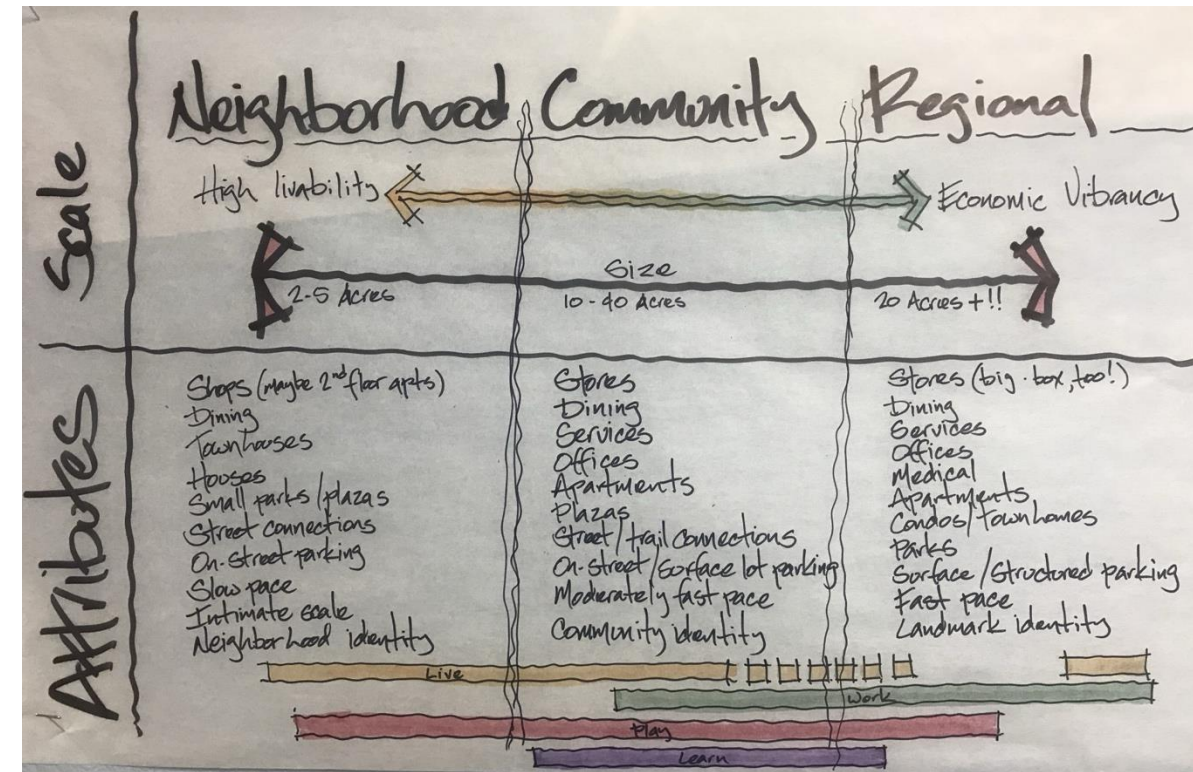 Neighborhood Community Regional
Scale
High livability Economic Vibrancy
Size
2-5 Acres 10-40 Acres 20 Acres +!!
Attributes
Shops (maybe 2nd floor apts)
Dining
Townhouses
Houses
Small parks/plazas
Street connections
On-street parking
Slow pace
Intimate scale
Neighborhood identity
Stores
Dining
Services
Offices
Apartments
Plazas
Street/trail connections
On-street/surface lot parking
Moderately fast pace
Community identity
Stores (big-box, too!)
Dining
Services
Offices
Medical
Apartments
Condos/Townhomes
Parks
Surface/Structured parking
Fast pace
Landmark identity
Live
Work
Play
Learn